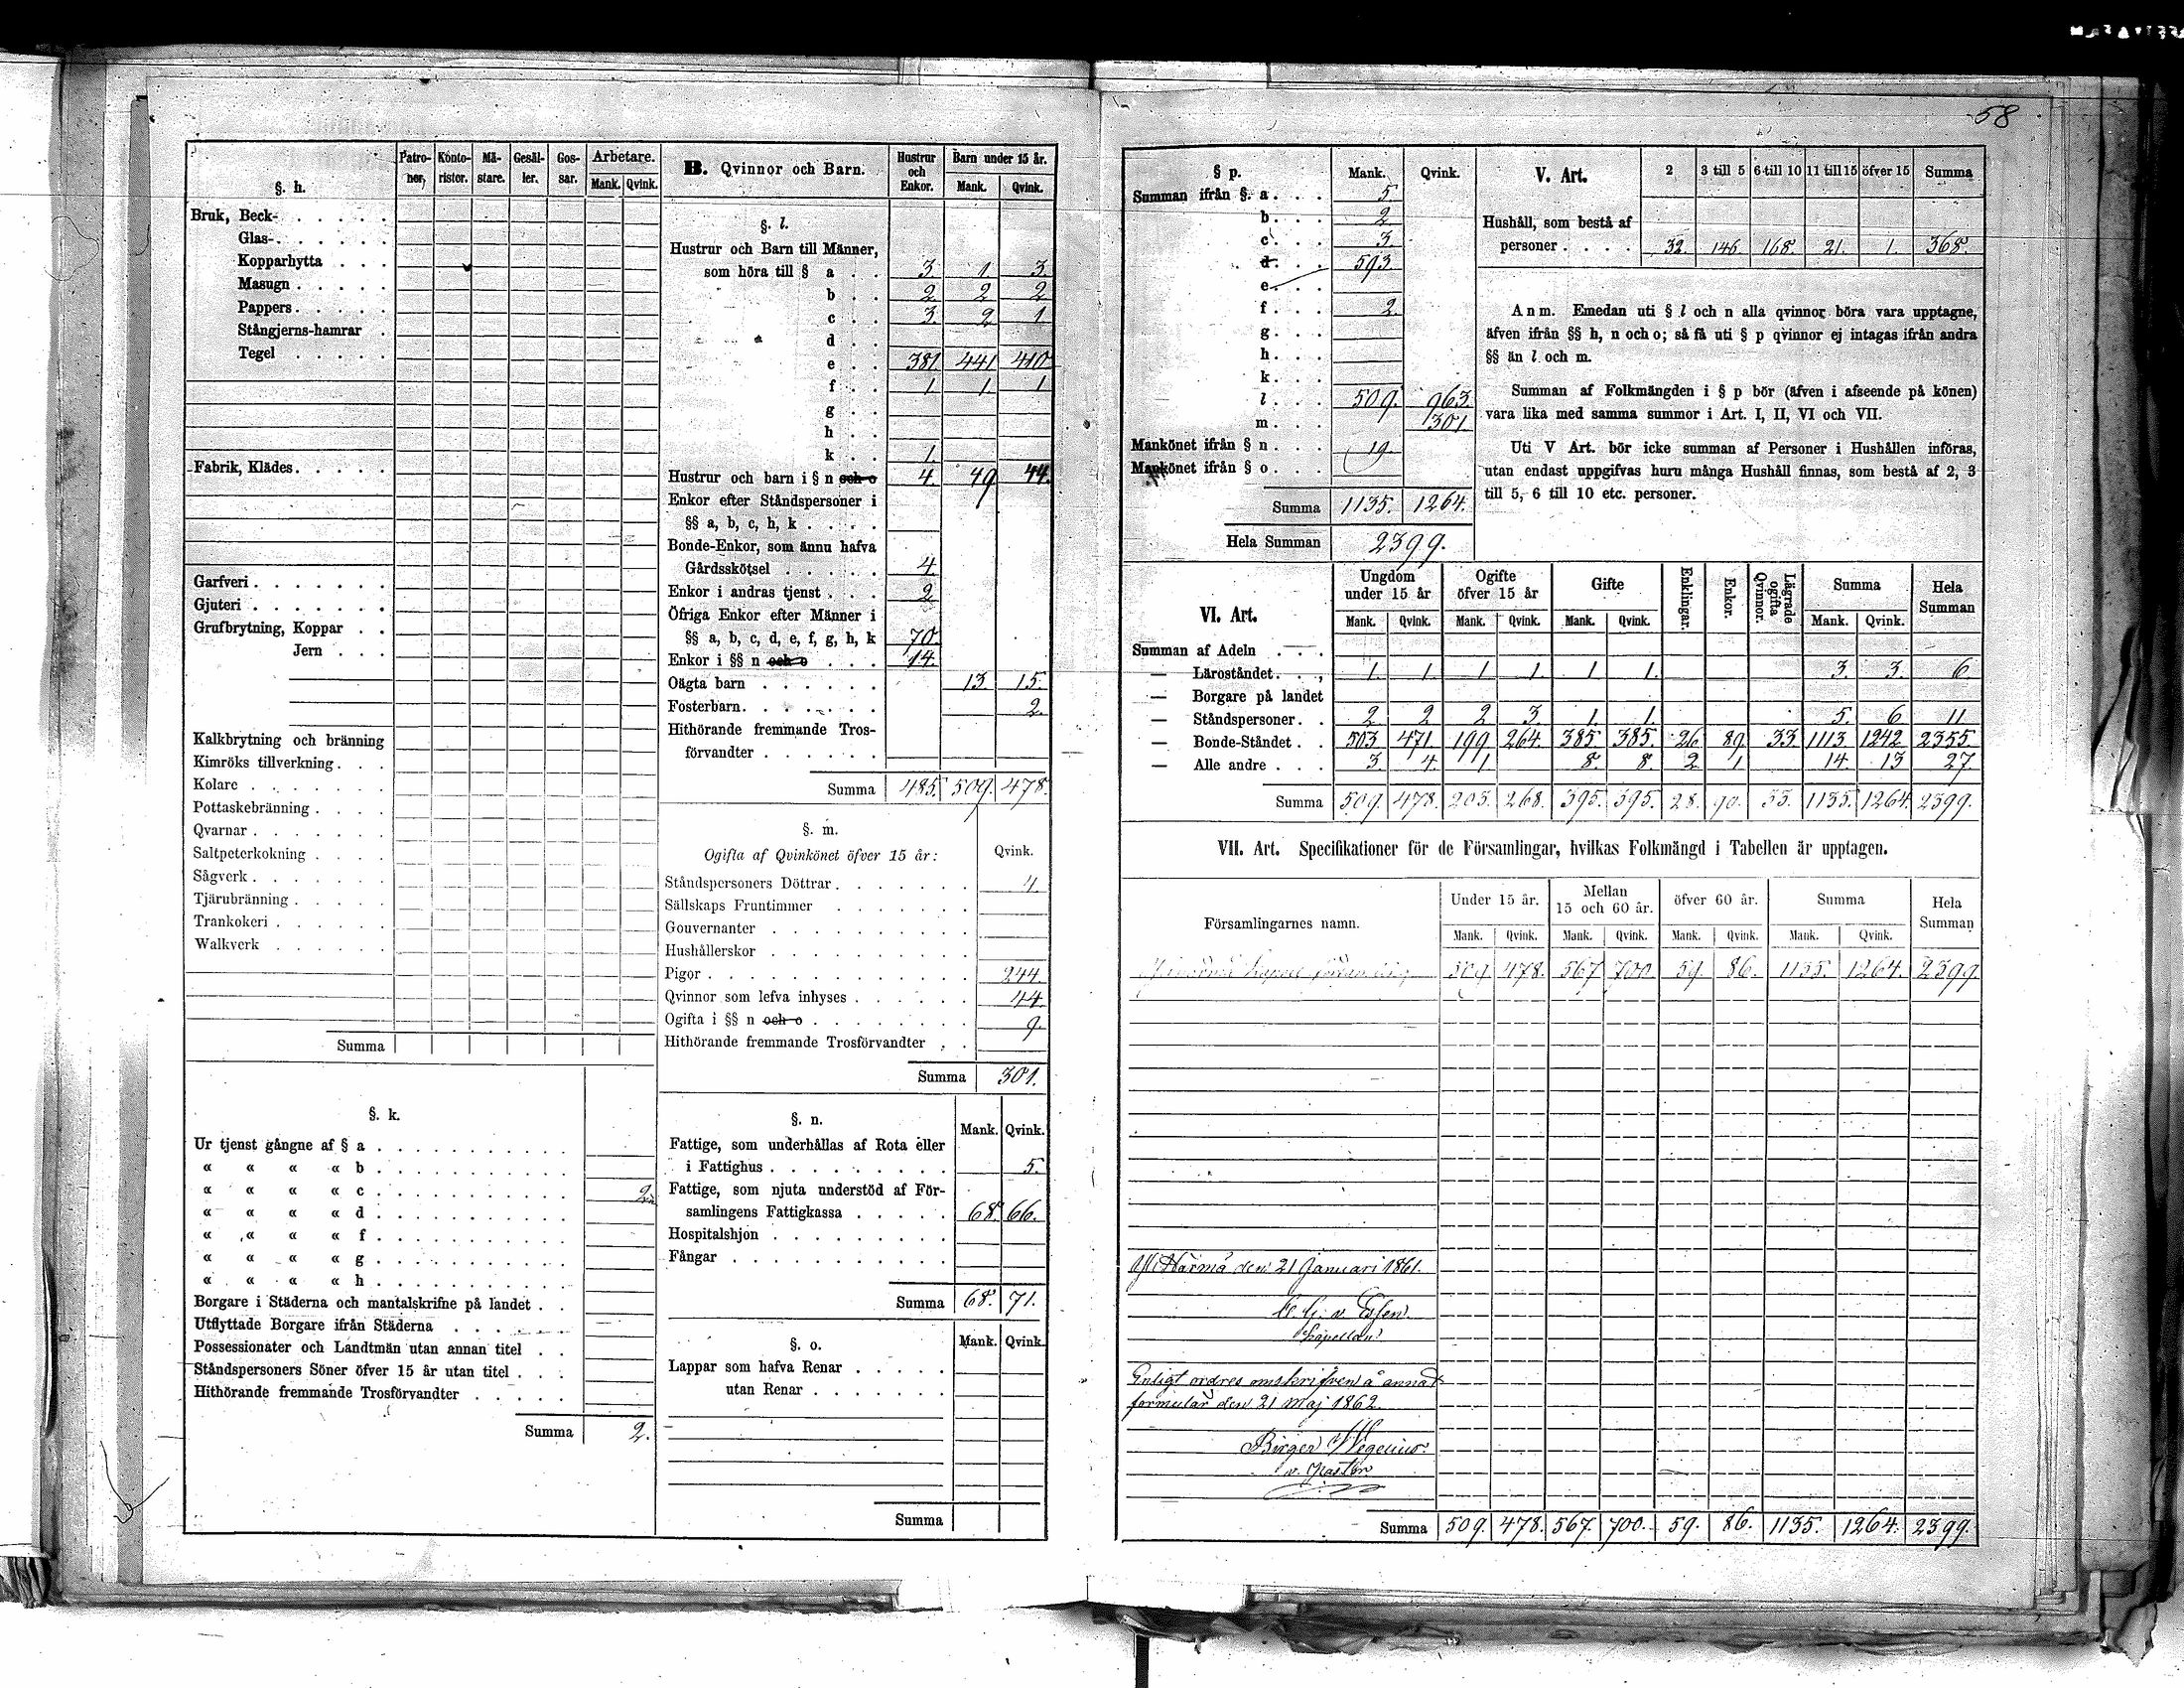 58
§. h.
Patro-ner, Konto-ristor. Mä-stare. Gesäl-ler. Gos-sar. Arbetare.
Mank. Qvink.
Bruk, Beck-
Glas-
Kopparhytta
Masugn
Pappers
Stångjerns-hamrar
Tegel
Fabrik, Klädes
Garfveri
Gjuteri
Grufbrytning, Koppar
Jern
Kalkbrytning och bränning
Kimröks tillverkning
Kolare
Pottaskebränning
Qvarnar
Saltpeterkokning
Sågverk
Tjärubränning
Trankokeri
Walkverk
Summa
§. k.
Ur tjenst gångne af § a
« « « « b
« « « « c 2
« « « « d
« « « « f
« « « « g
« « « « h
Borgare i Städerna och mantalskrifne på landet
Utflyttade Borgare ifrån Städerna
Possessionater och Landtmän utan annan titel
Ståndspersoners Söner öfver 15 år utan titel
Hithörande fremmande Trosförvandter
Summa 2.
B. Qvinnor och Barn. Hustrur och Enkor. Barn under 15 år.
Mank. Qvink.
§. l.
Hustrur och Barn till Männer,
som höra till § a 3. 1. 3.
b 2. 2 2
c 3. 2 1.
d
e 381. 441. 410
f 1 1. 1
g
h
k 1.
Hustrur och barn i § n och o 4. 49 44.
Enkor efter Ståndspersoner i
§§ a, b, c, h, k
Bonde-Enkor, som ännu hafva
Gårdsskötsel 4.
Enkor i andras tjenst 2
Öfriga Enkor efter Männer i
§§ a, b, c, d, e, f, g, h, k 70.
Enkor i §§ n och o 14.
Oägta barn 13. 15.
Fosterbarn 2.
Hithörande fremmande Tros-
förvandter
Summa 485. 509. 478.
§. m.
Ogifta af Qvinkönet öfver 15 år: Qvink.
Ståndspersoners Döttrar 4.
Sällskaps Fruntimmer
Gouvernanter
Hushållerskor
Pigor 244.
Qvinnor som lefva inhyses 44.
Ogifta i §§ n och o 9.
Hithörande fremmande Trosförvandter
Summa 301.
§. n.
Mank. Qvink.
Fattige, som underhållas af Rota eller
i Fattighus 5.
Fattige, som njuta understöd af För-
samlingens Fattigkassa 68. 66.
Hospitalshjon
Fångar
Summa 68. 71.
§. o. Mank. Qvink.
Lappar som hafva Renar
utan Renar
Summa
§ p. Mank. Qvink.
Summan ifrån §. a 5.
b 2
c 3.
d 593.
e
f 2.
g
h
k
l 509. 963.
m 301.
Mankönet ifrån § n 19.
Mankönet ifrån § o
Summa 1135. 1264.
Hela Summan 2399.
V. Art. 2 3 till 5 6 till 10 11 till 15 öfver 15 Summa
Hushåll, som bestå af
personer 32. 146. 168. 21. 1. 368.
Anm. Emedan uti § l och n alla qvinnor böra vara upptagne,
äfven ifrån §§ h, n och o; så få uti § p qvinnor ej intagas ifrån andra
§§ än l och m.
Summan af Folkmängden i § p bör (äfven i afseende på könen)
vara lika med samma summor i Art. I, II, VI och VII.
Uti V Art. bör icke summan af Personer i Hushållen införas,
utan endast uppgifvas huru många Hushåll finnas, som bestå af 2, 3
till 5, 6 till 10 etc. personer.
VI. Art. Ungdom under 15 år Ogifte öfver 15 år Gifte Enklingar. Enkor. Lägrade ogifta Qvinnor. Summa Hela Summan
Mank. Qvink. Mank. Qvink. Mank. Qvink. Mank. Qvink.
Summan af Adeln
— Läroståndet 1. 1. 1 1. 1 1. 3. 3. 6
— Borgare på landet
— Ståndspersoner 2 2 2 3. 1. 1. 5. 6 11
— Bonde-Ståndet 503. 471. 199 264. 385. 385. 26 89. 33. 1113. 1242. 2355.
— Alle andre 3. 4. 1 8. 8. 2. 1 14. 13 27.
Summa 509. 478. 203. 268. 395. 395. 28. 90. 33. 1135. 1264. 2399.
VII. Art. Specifikationer för de Församlingar, hvilkas Folkmängd i Tabellen är upptagen.
Församlingarnes namn. Under 15 år. Mellan 15 och 60 år. öfver 60 år. Summa Hela Summan
Mank. Qvink. Mank. Qvink. Mank. Qvink. Mank. Qvink.
509 478. 567 700. 59. 86. 1135. 1264. 2399.
Härmä den 21 Januari 1861.
v. Essen
Capellan
Enligt ordres omskrifven å annat
formulär den 21 Maj 1862
Birger Hegelius
v. Pastor
Summa 509. 478. 567. 700. 59. 86. 1135. 1264. 2399.